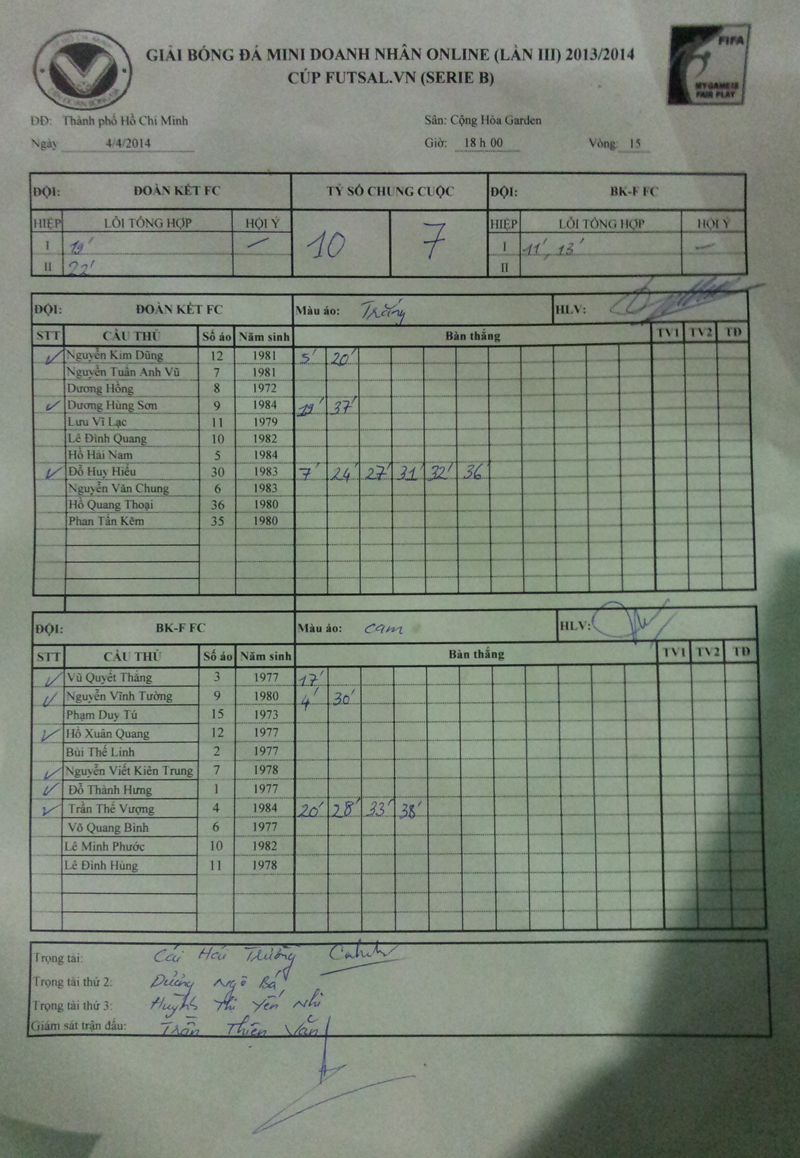 GIẢI BÓNG ĐÁ MINI DOANH NHÂN ONLINE (LẦN III) 2013/2014
CÚP FUTSAL.VN (SERIE B)
FIFA
MY GAME IS
FAIR PLAY
ĐĐ: Thành phố Hồ Chí Minh Sân: Cộng Hòa Garden
Ngày 4/4/2014 Giờ: 18 h 00 Vòng: 15
ĐỘI: ĐOÀN KẾT FC TỶ SỐ CHUNG CUỘC ĐỘI: BK-F FC
HIỆP LỖI TỔNG HỢP HỘI Ý 10 7 HIỆP LỖI TỔNG HỢP HỘI Ý
I 19' – I 11', 13' –
II 22' II
ĐỘI: ĐOÀN KẾT FC Màu áo: Trắng HLV:
STT CẦU THỦ Số áo Năm sinh Bàn thắng TV1 TV2 TĐ
✓ Nguyễn Kim Dũng 12 1981 5' 20'
Nguyễn Tuấn Anh Vũ 7 1981
Dương Hồng 8 1972
✓ Dương Hùng Sơn 9 1984 19' 37'
Lưu Vĩ Lạc 11 1979
Lê Đình Quang 10 1982
Hồ Hải Nam 5 1984
✓ Đỗ Huy Hiếu 30 1983 7' 24' 27' 31' 32' 36'
Nguyễn Văn Chung 6 1983
Hồ Quang Thoại 36 1980
Phan Tấn Kêm 35 1980
ĐỘI: BK-F FC Màu áo: cam HLV:
STT CẦU THỦ Số áo Năm sinh Bàn thắng TV1 TV2 TĐ
✓ Vũ Quyết Thắng 3 1977 17'
✓ Nguyễn Vĩnh Tường 9 1980 4' 30'
Phạm Duy Tú 15 1973
✓ Hồ Xuân Quang 12 1977
Bùi Thế Linh 2 1977
✓ Nguyễn Viết Kiên Trung 7 1978
✓ Đỗ Thành Hưng 1 1977
✓ Trần Thế Vượng 4 1984 20' 28' 33' 38'
Võ Quang Bình 6 1977
Lê Minh Phước 10 1982
Lê Đình Hùng 11 1978
Trọng tài: Cái Hoá Trường
Trọng tài thứ 2: Dương Ngô Bá
Trọng tài thứ 3: Huỳnh Thị Yến Nhi
Giám sát trận đấu: Trần Thiên Văn